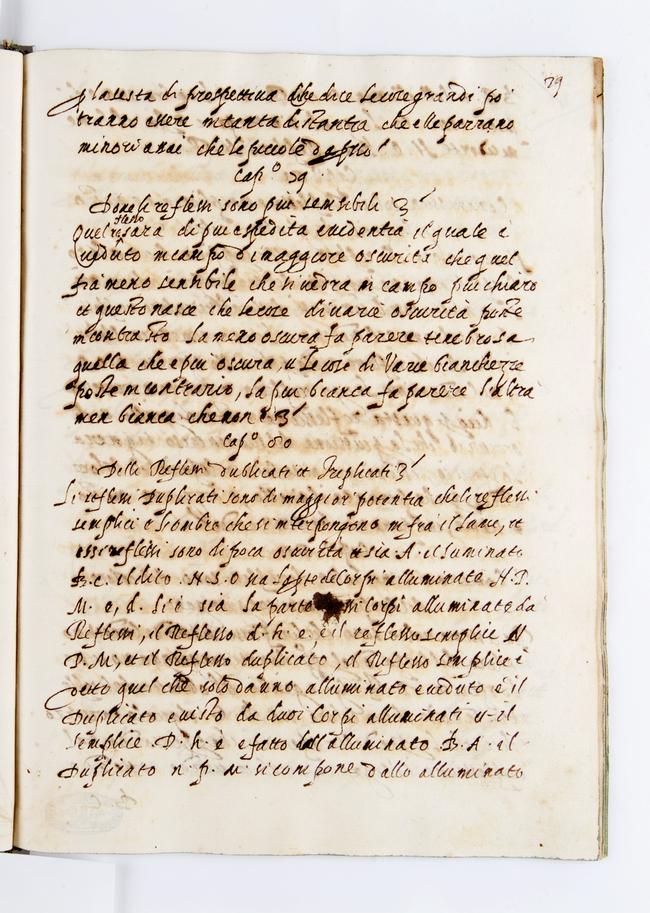 79
p la sesta di prospettiva che dice le cose grandi po
tranno essere in tanta distantia che elle parrano
minori assai che le piccole d apresso
Cap.º 79.
Dove li reflessi sono piu sensibili
Quel reflesso sara di piu espedita evidentia il quale è
veduto in campo di maggiore oscurità che quel
fia meno sensibile che si vedra in campo piu chiaro
et questo nasce che le cose di varie oscurità poste
in contrasto la meno oscura fa parere tenebrosa
quella che e piu oscura, et le cose di varie bianchezze
poste in contrario, la piu bianca fa parere l'altra
men bianca che non è
Cap.º 80
Delli Reflessi dublicati et Treplicati
Li reflessi Duplicati sono di maggior potentia che li reflessi
semplici e l'ombre che si interpongono infra il lume, et
essi reflessi sono di poca oscurita sia A. il luminato
B. C. il dito . N. S. O sia le parte de Corpi alluminate N. P.
M. e, d. li è sia la parte Corpi alluminate da
Reflessi, il Reflesso d. h. e, è il reflesso semplice N
P. M, et il Reflesso duplicato, il Reflesso semplice è
detto quel che solo da uno alluminato è veduto è il
Duplicato è visto da duoi Corpi alluminati il
semplice D. h. è e fatto dall'alluminato B. A. il
Duplicato n. p. M si compone dallo alluminato